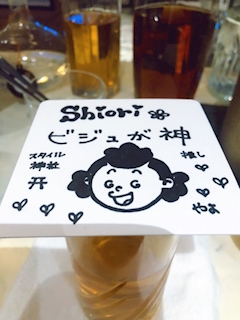 Shiori
ビジュが神
スタイル
神社
推し
やぁ